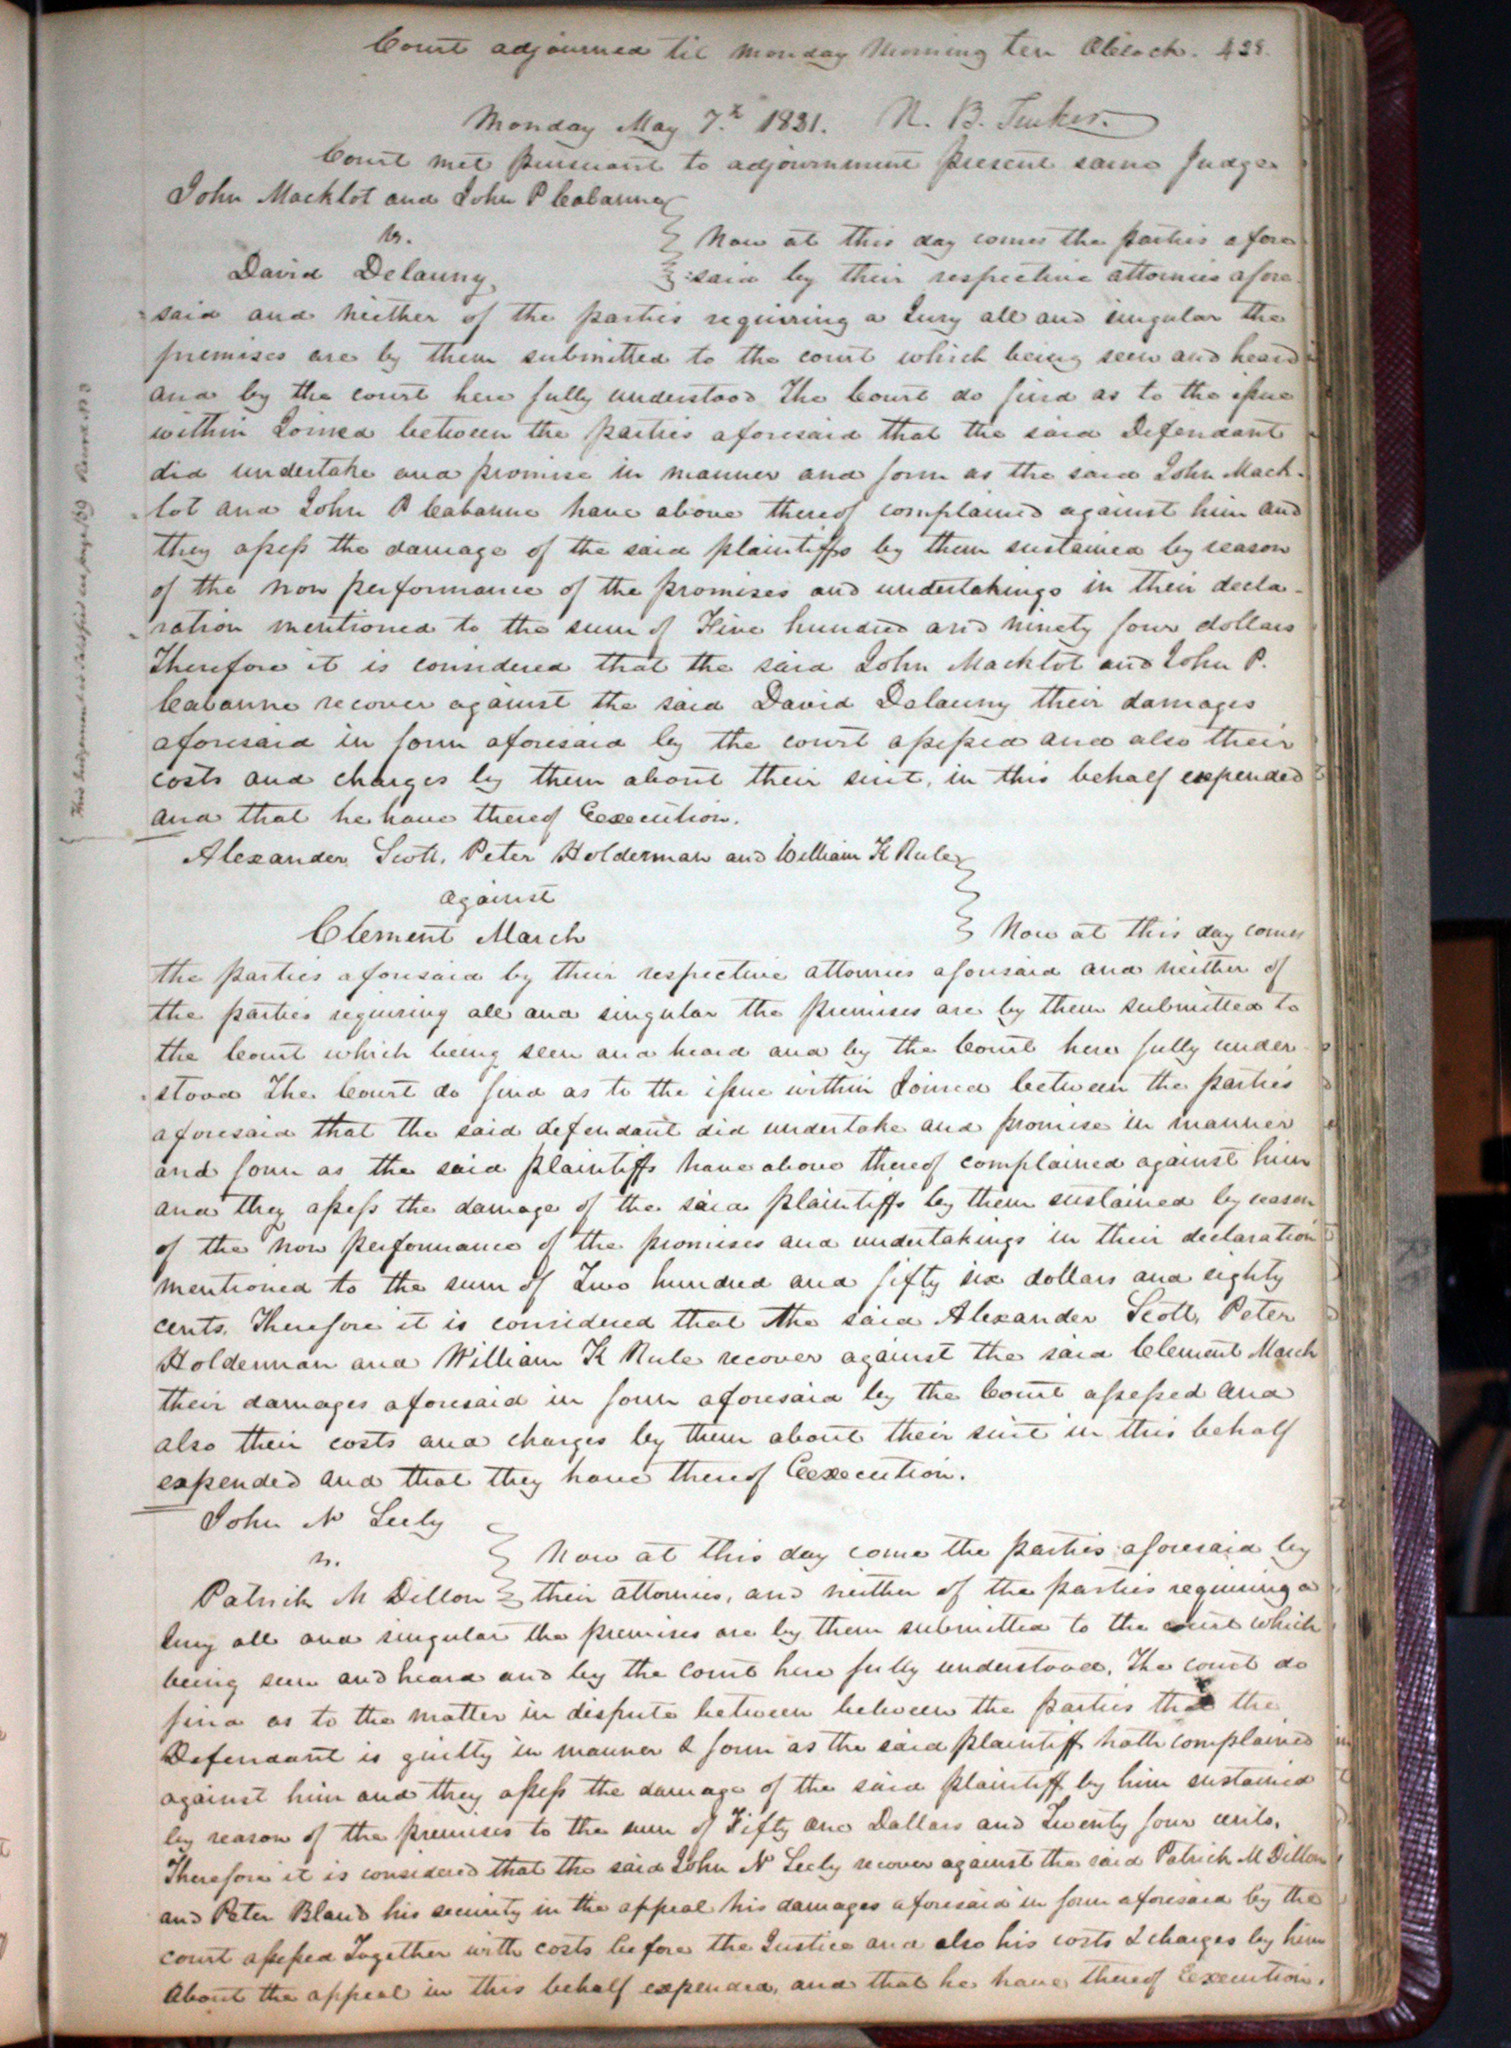 Court adjourned til monday Morning ten Oclock. 428.
Monday May 7.th 1821. N. B. Tucker.
Court met pursuant to adjournment present same Judge
John Macklot and John P Cabanne
vs.
Now at this day comes the parties afore
David Delauny,
:said by their respective attornies afore
said and neither of the parties requiring a Jury all and singular the
premises are by them submitted to the court which being seen and heard
and by the court here fully understood The Court do find as to the issue
within Joined between the parties aforesaid that the said Defendant
did undertake and promise in manner and form as the said John Mack-
lot and John P Cabanne have above thereof complained against him and
they assess the damage of the said plaintiffs by them sustained by reason
of the non performance of the promises and undertakings in their decla-
ration mentioned to the sum of Five hundred and ninety four dollars
Therefore it is considered that the said John Macklot and John P.
Cabanne recover against the said David Delauny their damages
aforesaid in form aforesaid by the court assessed and also their
costs and charges by them about their suit, in this behalf expended
and that he have thereof Execution.
This judgement is satisfied see page 139 Record No 3
Alexander Scott, Peter Holderman and William K Rule
against
Clement March
Now at this day comes
the parties aforesaid by their respective attornies aforesaid and neither of
the parties requiring all and singular the premises are by them submitted to
the Court which being seen and heard and by the Court here fully under
stood The Court do find as to the issue within Joined between the parties
aforesaid that the said defendant did undertake and promise in manner
and form as the said plaintiffs have above thereof complained against him
and they assess the damage of the said plaintiffs by them sustained by reason
of the non performance of the promises and undertakings in their declaration
mentioned to the sum of Two hundred and fifty six dollars and eighty
cents. Therefore it is considered that the said Alexander Scott, Peter
Holderman and William K Rule recover against the said Clement March
their damages aforesaid in form aforesaid by the Court assessed and
also their costs and charges by them about their suit in this behalf
expended and that they have thereof Execution.
John N Seely
vs.
Now at this day come the parties aforesaid by
Patrick M Dillon their attornies, and neither of the parties requiring a
Jury all and singular the premises are by them submitted to the court which
being seen and heard and by the court here fully understood. The court do
find as to the matter in dispute between between the parties that the
Defendant is guilty in manner & form as the said plaintiff hath complained
against him and they assess the damage of the said plaintiff by him sustained
by reason of the premises to the sum of Fifty one Dollars and Twenty four cents.
Therefore it is considered that the said John N Seely recover against the said Patrick M Dillon
and Peter Bland his security in the appeal his damages aforesaid in form aforesaid by the
court assessed Together with costs before the Justice and also his costs & charges by him
About the appeal in this behalf expended, and that he have thereof Execution.